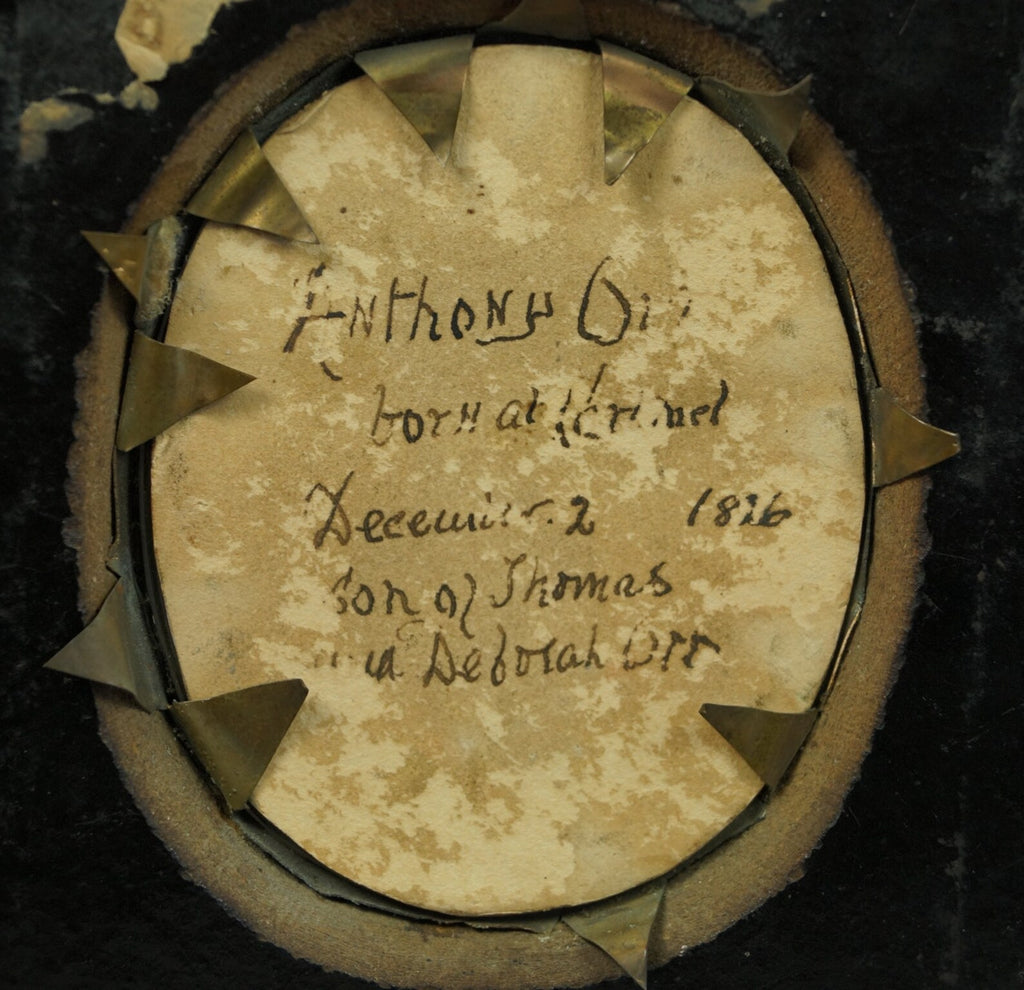 Anthony Orr
born at
December 2 1826
Son of Thomas
and Deborah Orr